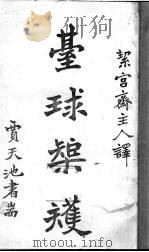 絜宮齋主人譯
臺球榘矱
賈天池書耑
mtoou.info